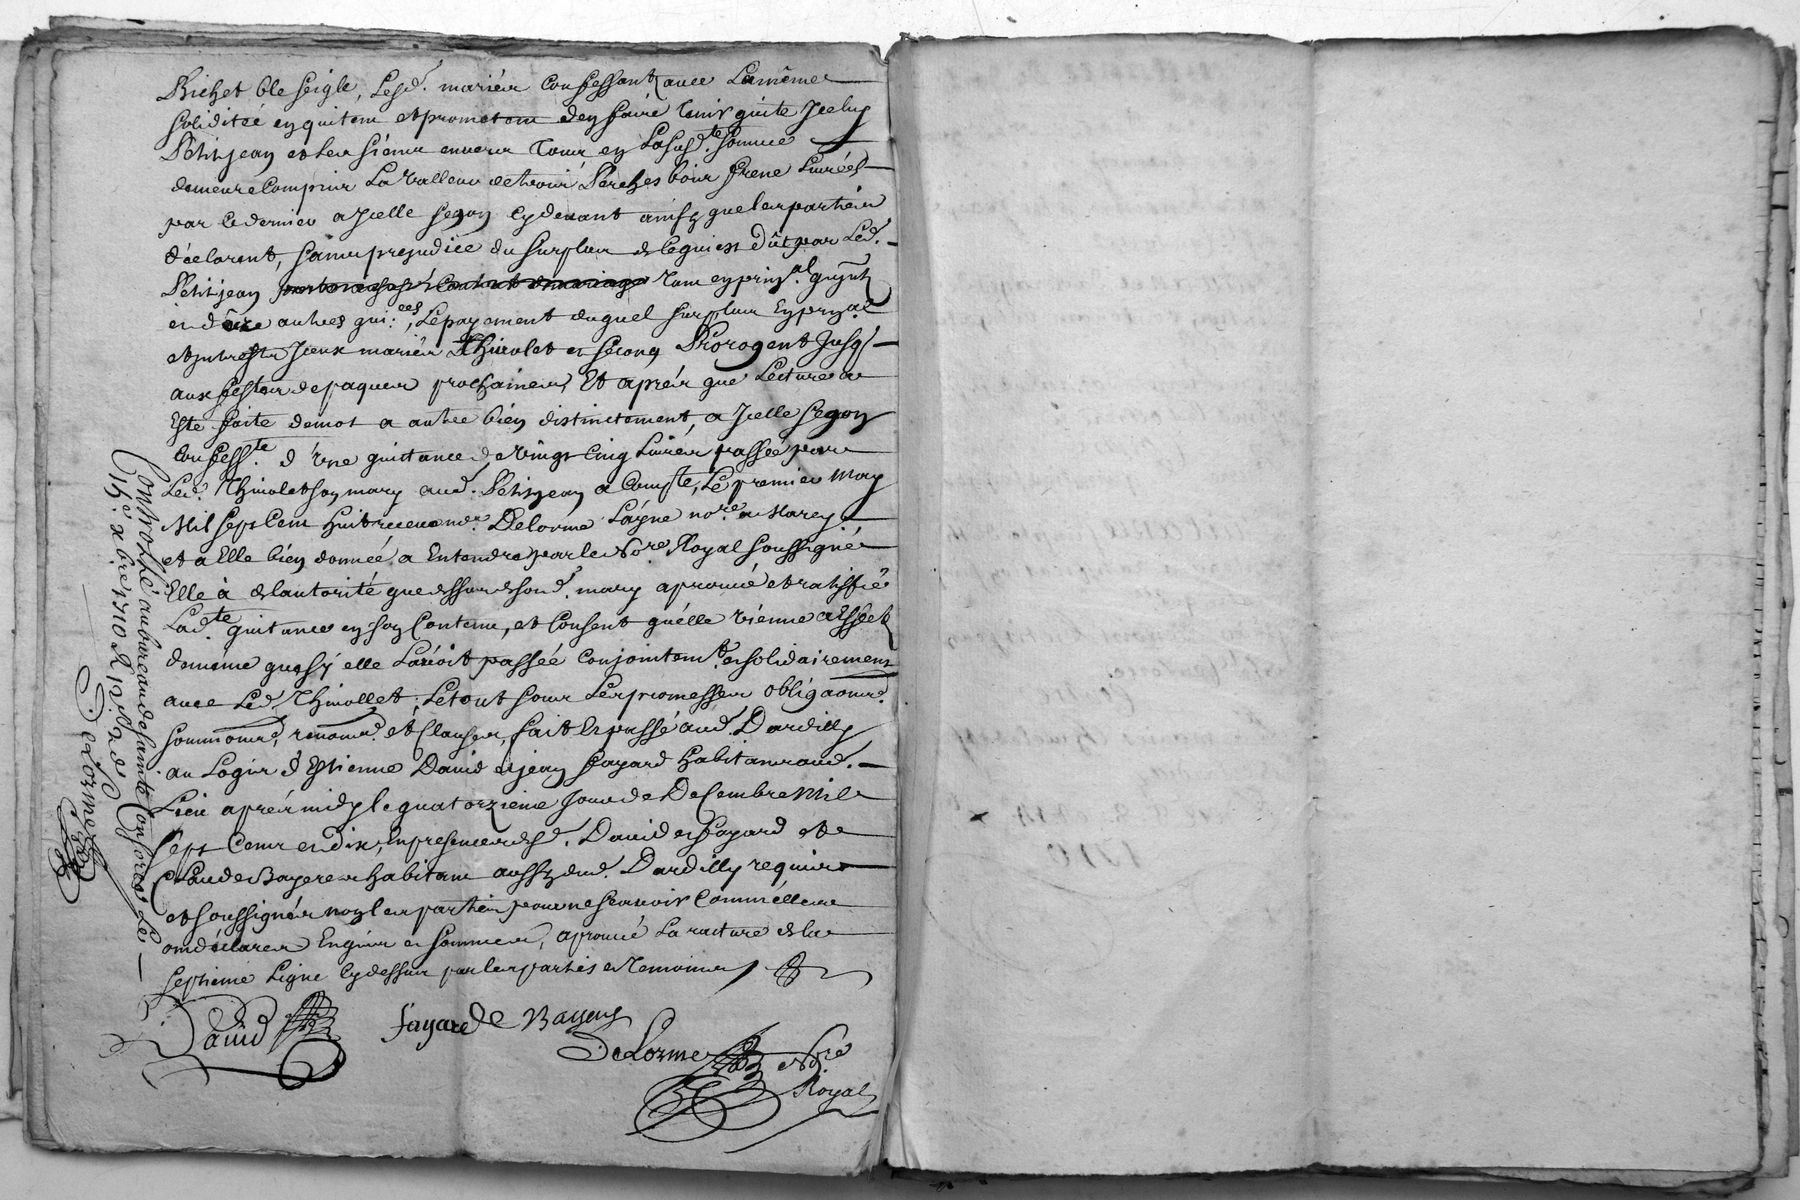 Bichet ble seigle, Lesd. mariés confessant avec La même
solidité en quitent et prometent den faire tenir quite Jceluy
Petitjean et les siens envers tous en Lasusd.te somme
demeure compris La valleur de trois Perches bois frene Livrées
par ce dernier a Jcelle Segon cydevant ainsy que les parties
déclarent, sans prejudice du surplus de ce qui est dût par Led.
Petitjean tant en prin.al
en d autres qui.ces, Le payement duquel surplus en prin.al
et Jceux mariés Thivolet et Second Prorogent Jusq.
aux festes de paques prochaines, Et aprés que Lecture a
Este faite de mot a autre bien distinctement, a Jcelle Segon
Confess.te d'Une quittance de vingt cinq Livres passée par
Led. Thivolet son mary aud. Petitjean a Compte, Le premier May
Mil Sept Cent huit Delorme Layne no.re a Marcy
et a Elle bien donnée a Entendre par le No.re Royal soussigné
Elle à de lautorité que dessus de sond. mary aprouvé et ratiffié
Lad.te quitance en son Contenu, et Consent quélle vienne a Effet
de même que sy elle Lavoit passée conjointem.t et solidairement
avec Led. Thivollet; Le tout sous Les promesses obligaons
soumions, renons. et Clauses, fait Et passé aud. Dardilly
au Logis d'Estienne David et jean fayard habitans aud.
Lieu aprés midy le quatorzieme Jour de Decembre Mil
Sept Cents et dix, En presence desd. David et fayard et de
Claude Bayere habitant aussy dud. Dardilly requis
et soussignés non les parties pour ne scavoir Comme elles
ont déclarées Enquis et sommées, aprouvé La rature de la
septieme Ligne cy dessus par les parties et temoins
David fayard C Bayere
DeLorme No.re
Royal
Controllé au bureau de Sainte Consorce Le
15.e xbre 1710 R 12 s
DeLorme